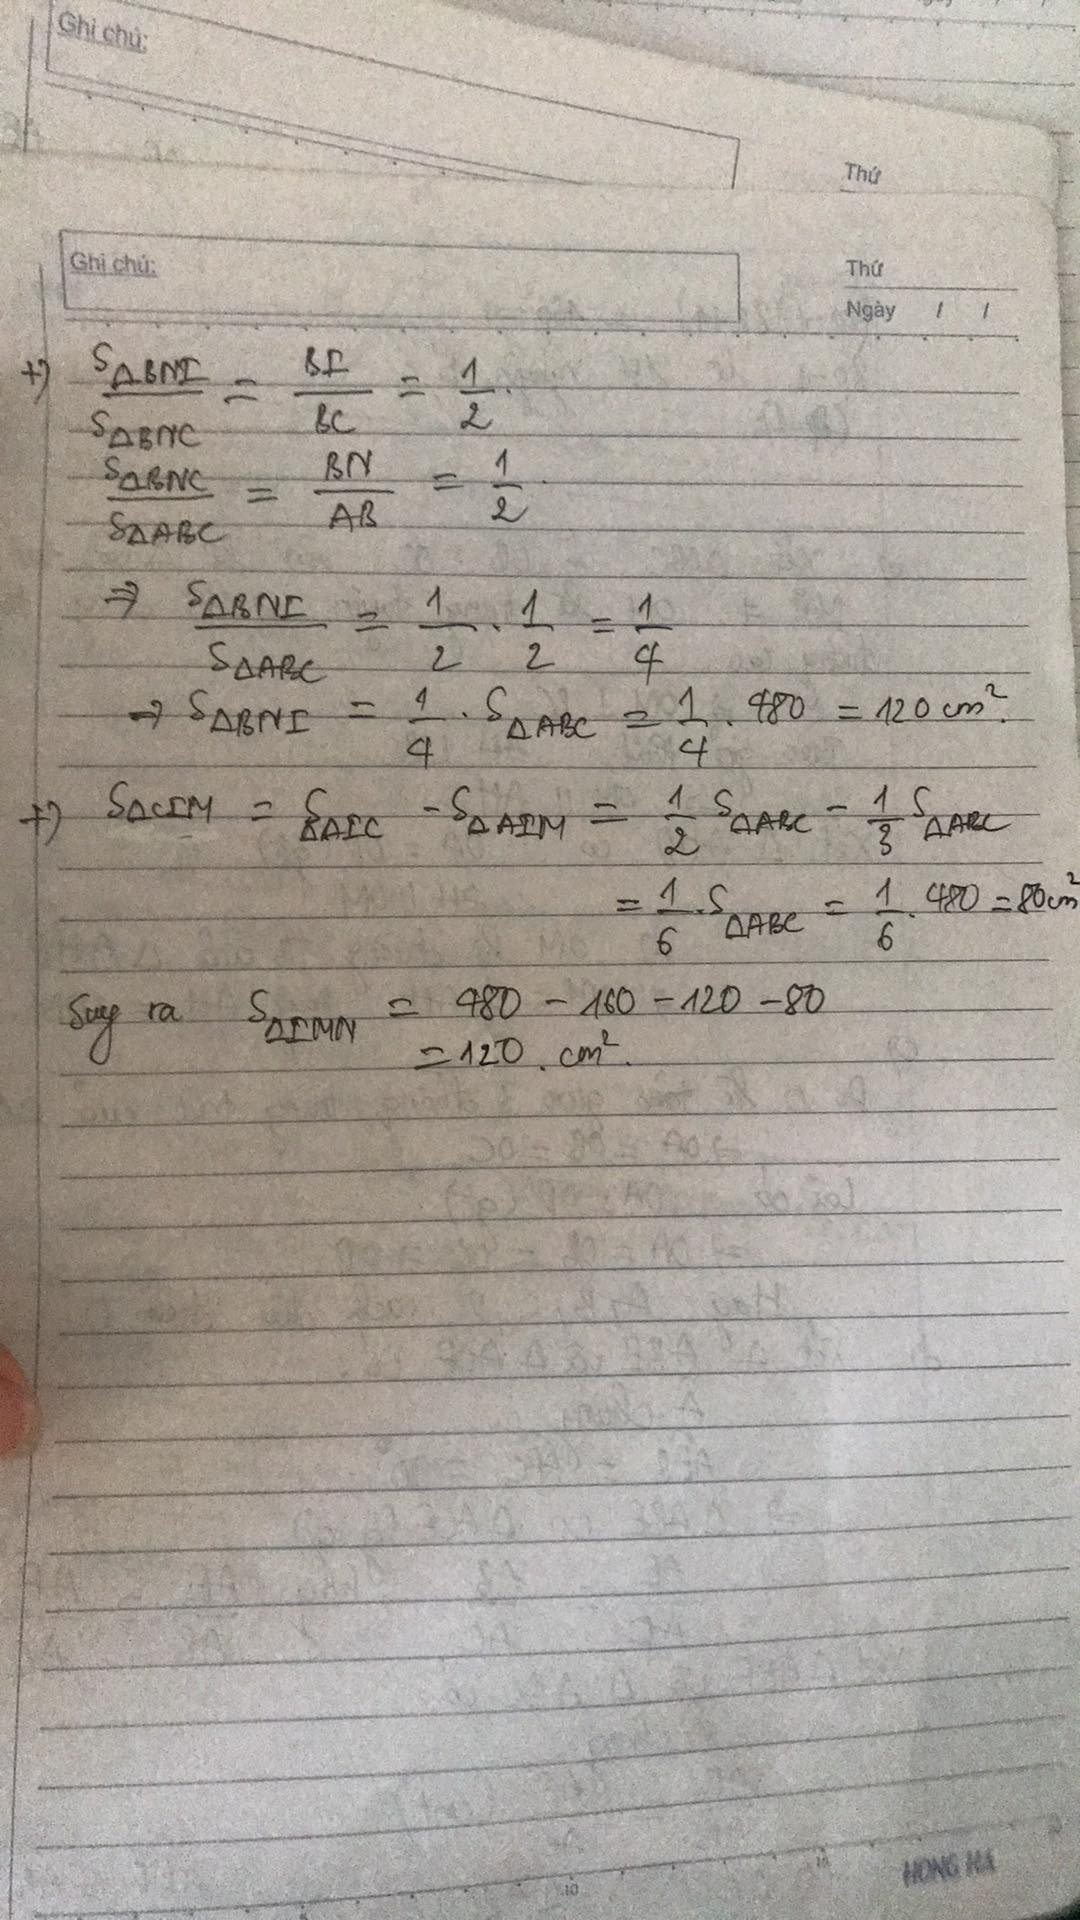 Ghi chú:
Thứ
Ghi chú:
Thứ
Ngày / /
+) SΔBNI / SΔBNC = BI / BC = 1/2.
SΔBNC / SΔABC = BN / AB = 1/2.
⇒ SΔBNI / SΔABC = 1/2 . 1/2 = 1/4
⇒ SΔBNI = 1/4 . SΔABC = 1/4 . 480 = 120 cm².
+) SΔCIM = SΔAIC - SΔAIM = 1/2 SΔABC - 1/3 SΔABC
= 1/6 . SΔABC = 1/6 . 480 = 80cm²
Suy ra SΔIMN = 480 - 160 - 120 - 80
= 120 . cm².
HONG HA